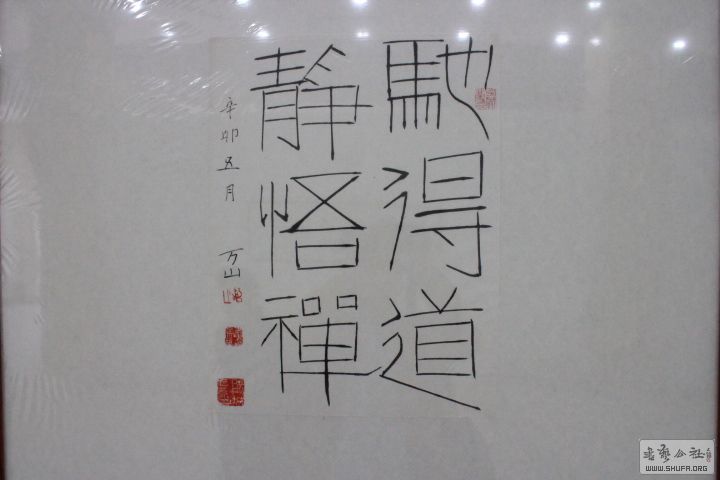 馳得道
靜悟禪
辛卯五月 万山
書藝公社
WWW.SHUFA.ORG